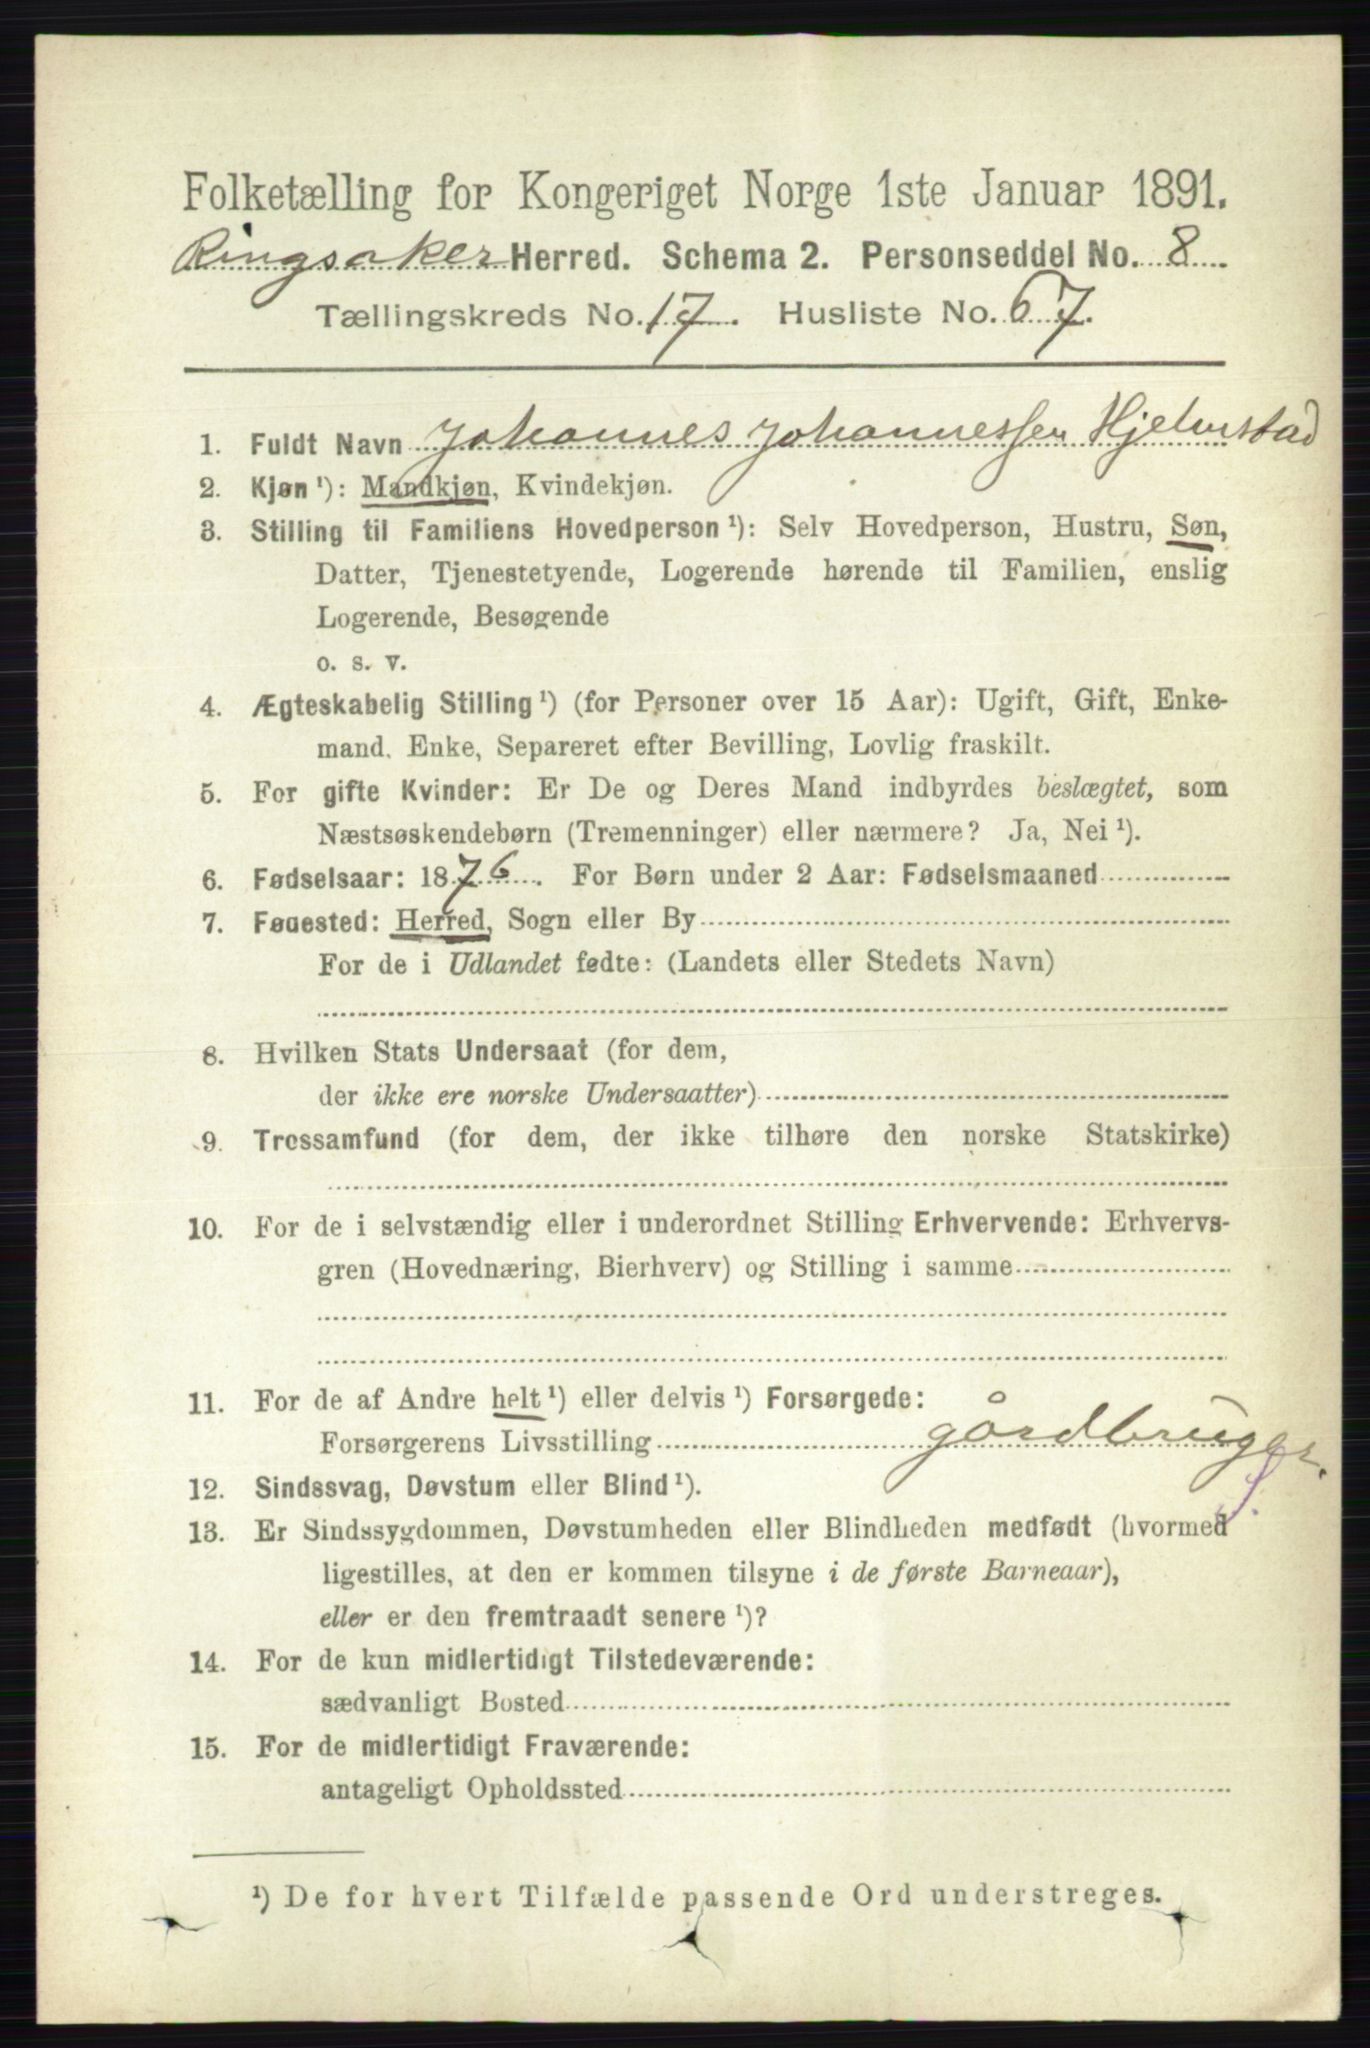 Folketælling for Kongeriget Norge 1ste Januar 1891.
Ringsaker Herred. Schema 2. Personseddel No. 8
Tællingskreds No. 17. Husliste No. 67.
1. Fuldt Navn Johannes Johannessen Hjelmstad
2. Kjøn ¹): Mandkjøn, Kvindekjøn.
3. Stilling til Familiens Hovedperson ¹): Selv Hovedperson, Hustru, Søn,
Datter, Tjenestetyende, Logerende hørende til Familien, enslig
Logerende, Besøgende
o. s. v.
4. Ægteskabelig Stilling ¹) (for Personer over 15 Aar): Ugift, Gift, Enke-
mand, Enke, Separeret efter Bevilling, Lovlig fraskilt.
5. For gifte Kvinder: Er De og Deres Mand indbyrdes beslægtet, som
Næstsøskendebørn (Tremenninger) eller nærmere? Ja, Nei ¹).
6. Fødselsaar: 1876. For Børn under 2 Aar: Fødselsmaaned
7. Fødested: Herred, Sogn eller By
For de i Udlandet fødte: (Landets eller Stedets Navn)
8. Hvilken Stats Undersaat (for dem,
der ikke ere norske Undersaatter)
9. Trossamfund (for dem, der ikke tilhøre den norske Statskirke)
10. For de i selvstændig eller i underordnet Stilling Erhvervende: Erhvervs-
gren (Hovednæring, Bierhverv) og Stilling i samme
11. For de af Andre helt ¹) eller delvis ¹) Forsørgede:
Forsørgerens Livsstilling gårdbruger.
S.
12. Sindssvag, Døvstum eller Blind ¹).
13. Er Sindssygdommen, Døvstumheden eller Blindheden medfødt (hvormed
ligestilles, at den er kommen tilsyne i de første Barneaar),
eller er den fremtraadt senere ¹)?
14. For de kun midlertidigt Tilstedeværende:
sædvanligt Bosted
15. For de midlertidigt Fraværende:
antageligt Opholdssted
¹) De for hvert Tilfælde passende Ord understreges.